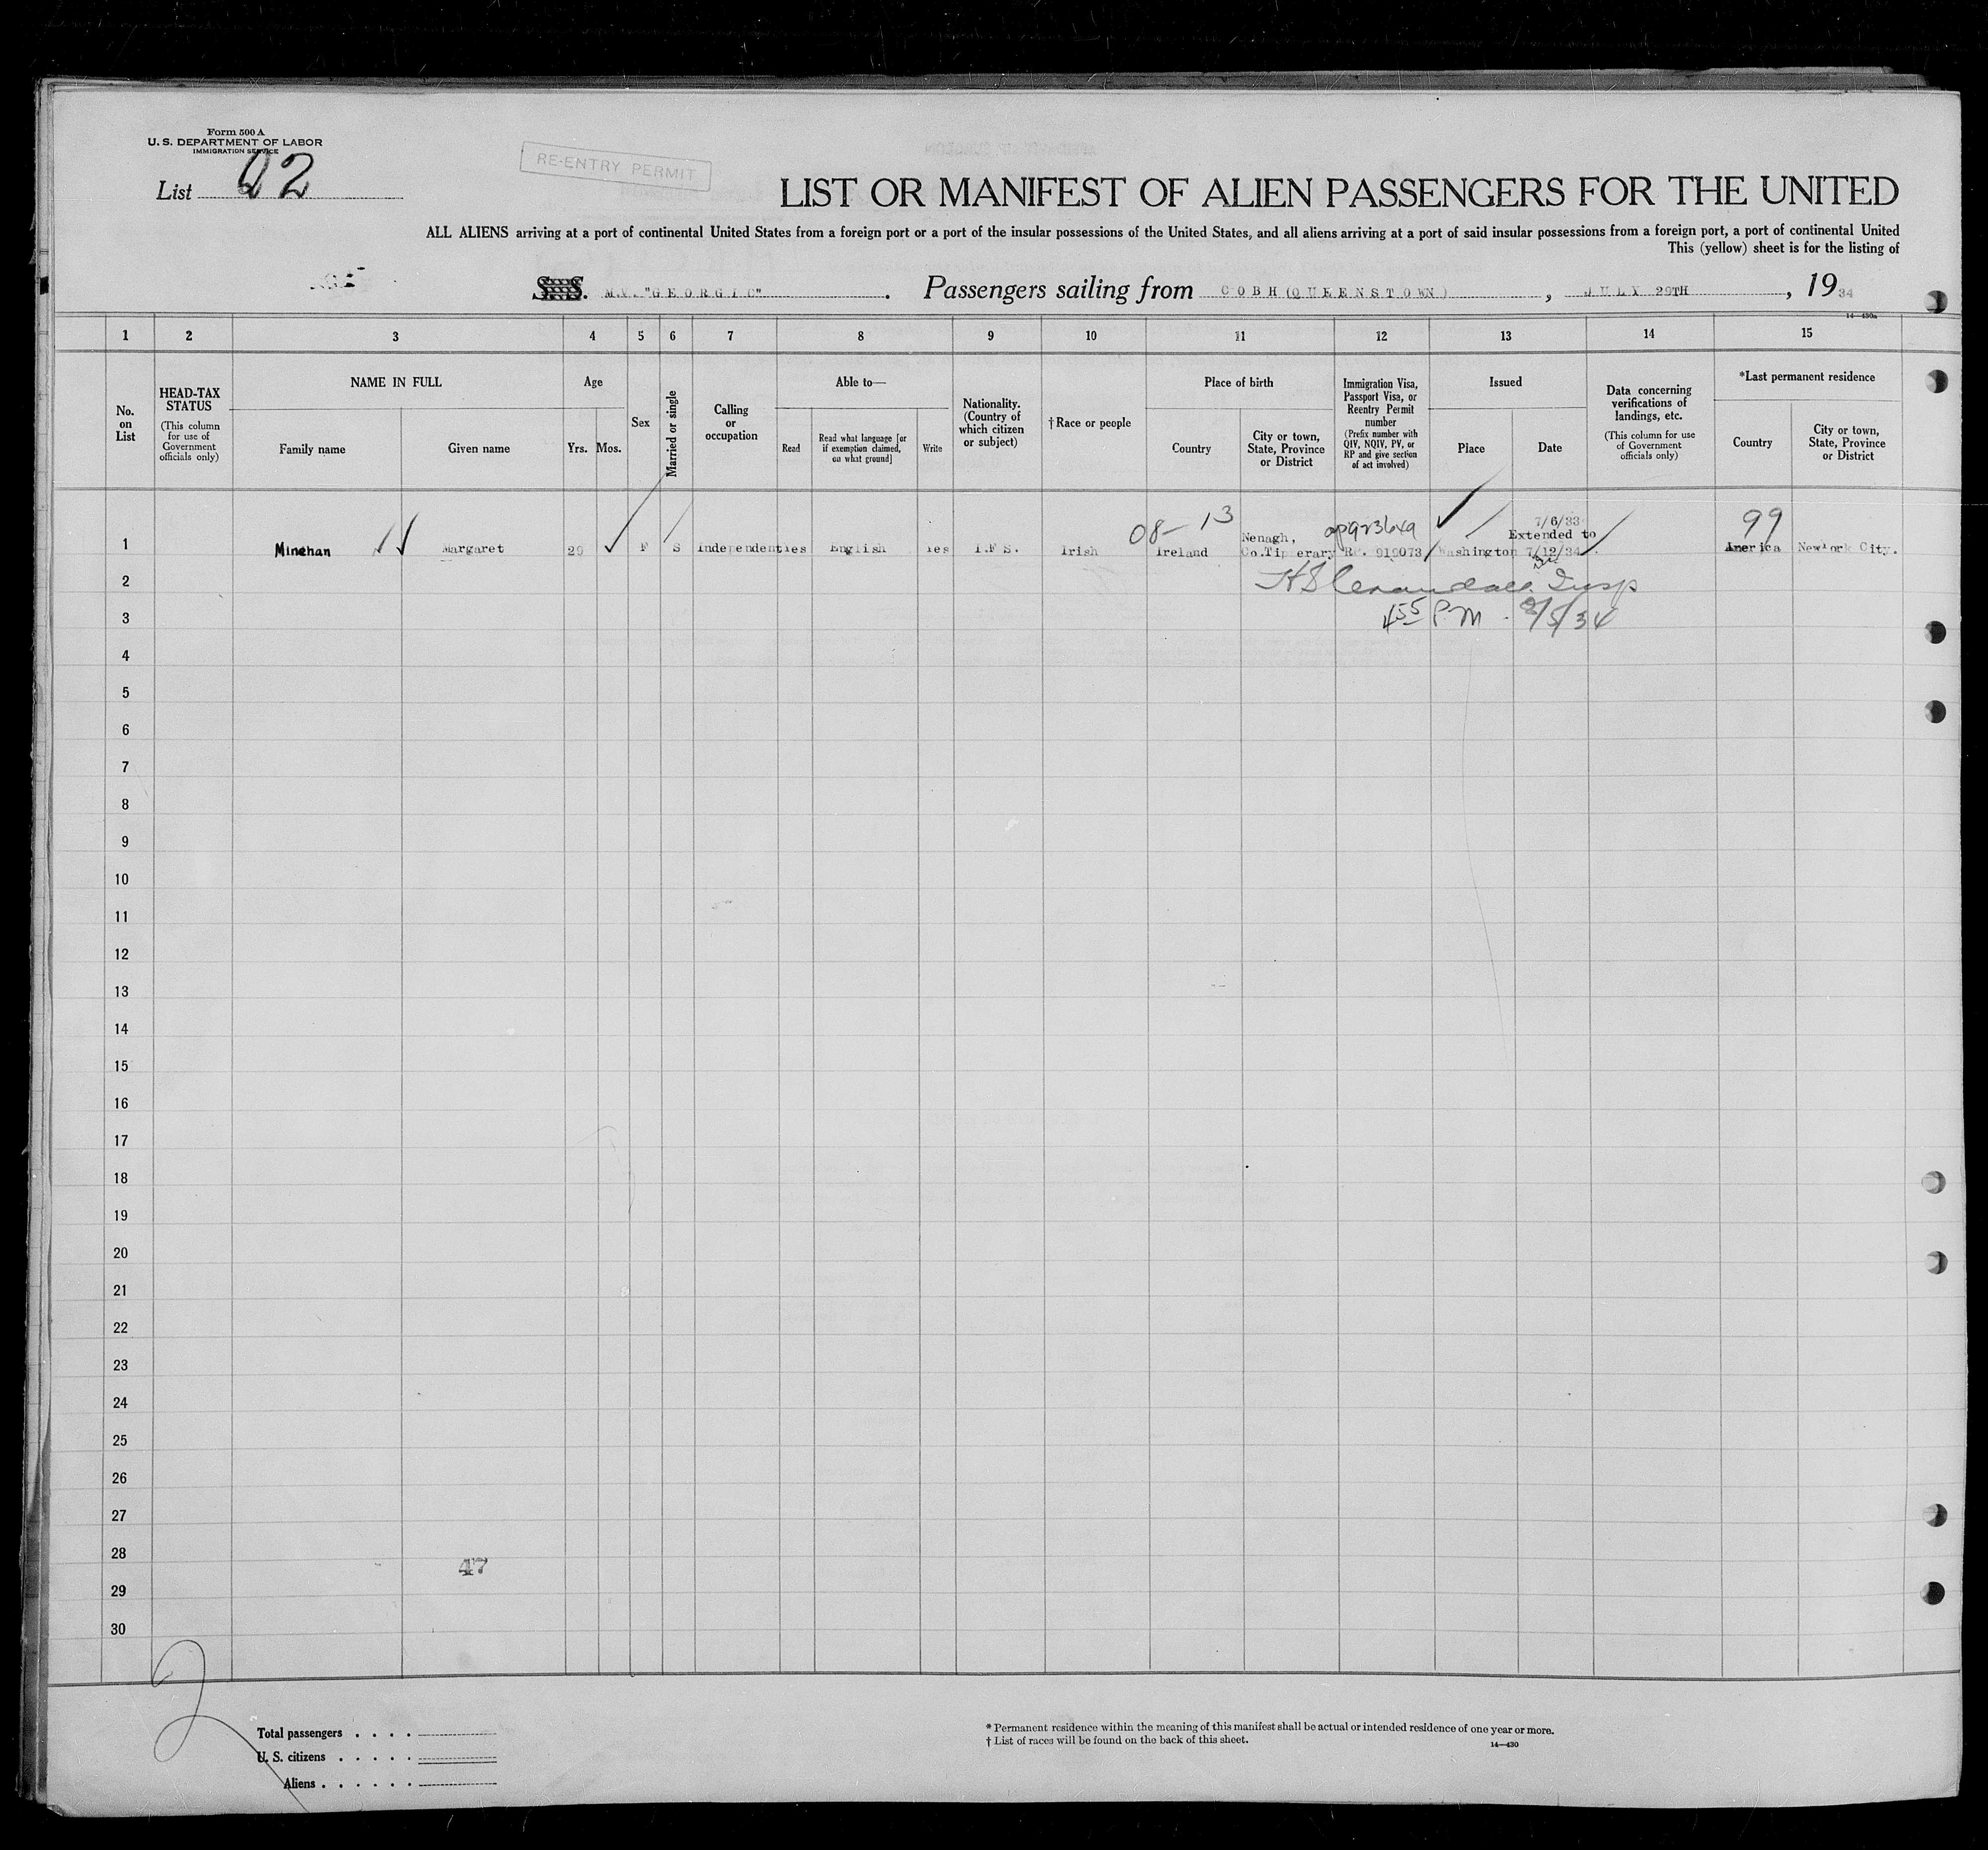 Form 500 A
U. S. DEPARTMENT OF LABOR
IMMIGRATION SERVICE
List 22
RE-ENTRY PERMIT
LIST OR MANIFEST OF ALIEN PASSENGERS FOR THE UNITED
ALL ALIENS arriving at a port of continental United States from a foreign port or a port of the insular possessions of the United States, and all aliens arriving at a port of said insular possessions from a foreign port, a port of continental United
This (yellow) sheet is for the listing of
S. S. M.V. "GEORGIC". Passengers sailing from COBH (QUEENSTOWN), JULY 29TH, 1934
14—430a
1 2 3 4 5 6 7 8 9 10 11 12 13 14 15
No. on List
HEAD-TAX STATUS
(This column for use of Government officials only)
NAME IN FULL
Family name
Given name
Age
Yrs. Mos.
Sex
Married or single
Calling or occupation
Able to—
Read
Read what language [or if exemption claimed, on what ground]
Write
Nationality. (Country of which citizen or subject)
† Race or people
Place of birth
Country
City or town, State, Province or District
Immigration Visa, Passport Visa, or Reentry Permit number
(Prefix number with QIV, NQIV, PV, or RP and give section of act involved)
Issued
Place
Date
Data concerning verifications of landings, etc.
(This column for use of Government officials only)
*Last permanent residence
Country
City or town, State, Province or District
08-13
99
7/6/33
Nenagh, Extended to
1 Minehan Margaret 29 F S Independent Yes English Yes I.F.S. Irish Ireland Co.Tipperary RP. 919073 Washington 7/12/34 America New York City.
2 Insp
3 4 55 P.M. 8/5/34
4
5
6
7
8
9
10
11
12
13
14
15
16
17
18
19
20
21
22
23
24
25
26
27
28
47
29
30
2
Total passengers . . . .
U. S. citizens . . . . .
Aliens . . . . . .
* Permanent residence within the meaning of this manifest shall be actual or intended residence of one year or more.
† List of races will be found on the back of this sheet.
14—430